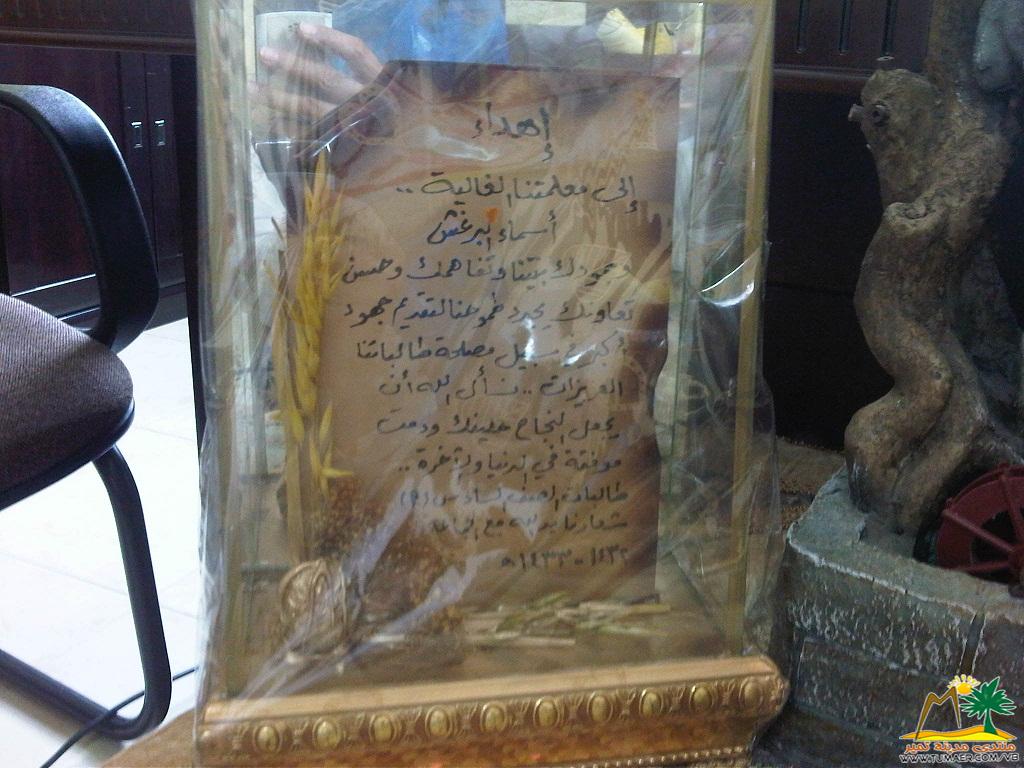 إهداء
إلى معلمتنا الغالية ..
أسماء البرغش
وجودك بيننا وتفاهمك وحسن
تعاونك يجدد طموحنا لتقديم جهود
أكبر في سبيل مصلحة طالباتنا
العزيزات .. نسأل الله أن
يجعل النجاح حليفك ودمت
موفقة في الدنيا والآخرة ..
طالبات الصف السادس (P)
شعارنا يد الله مع الجماعة
١٤٣٢ - ١٤٣٣ هـ
منتدى مدينة تمير
WWW.TUMAER.COM/VB